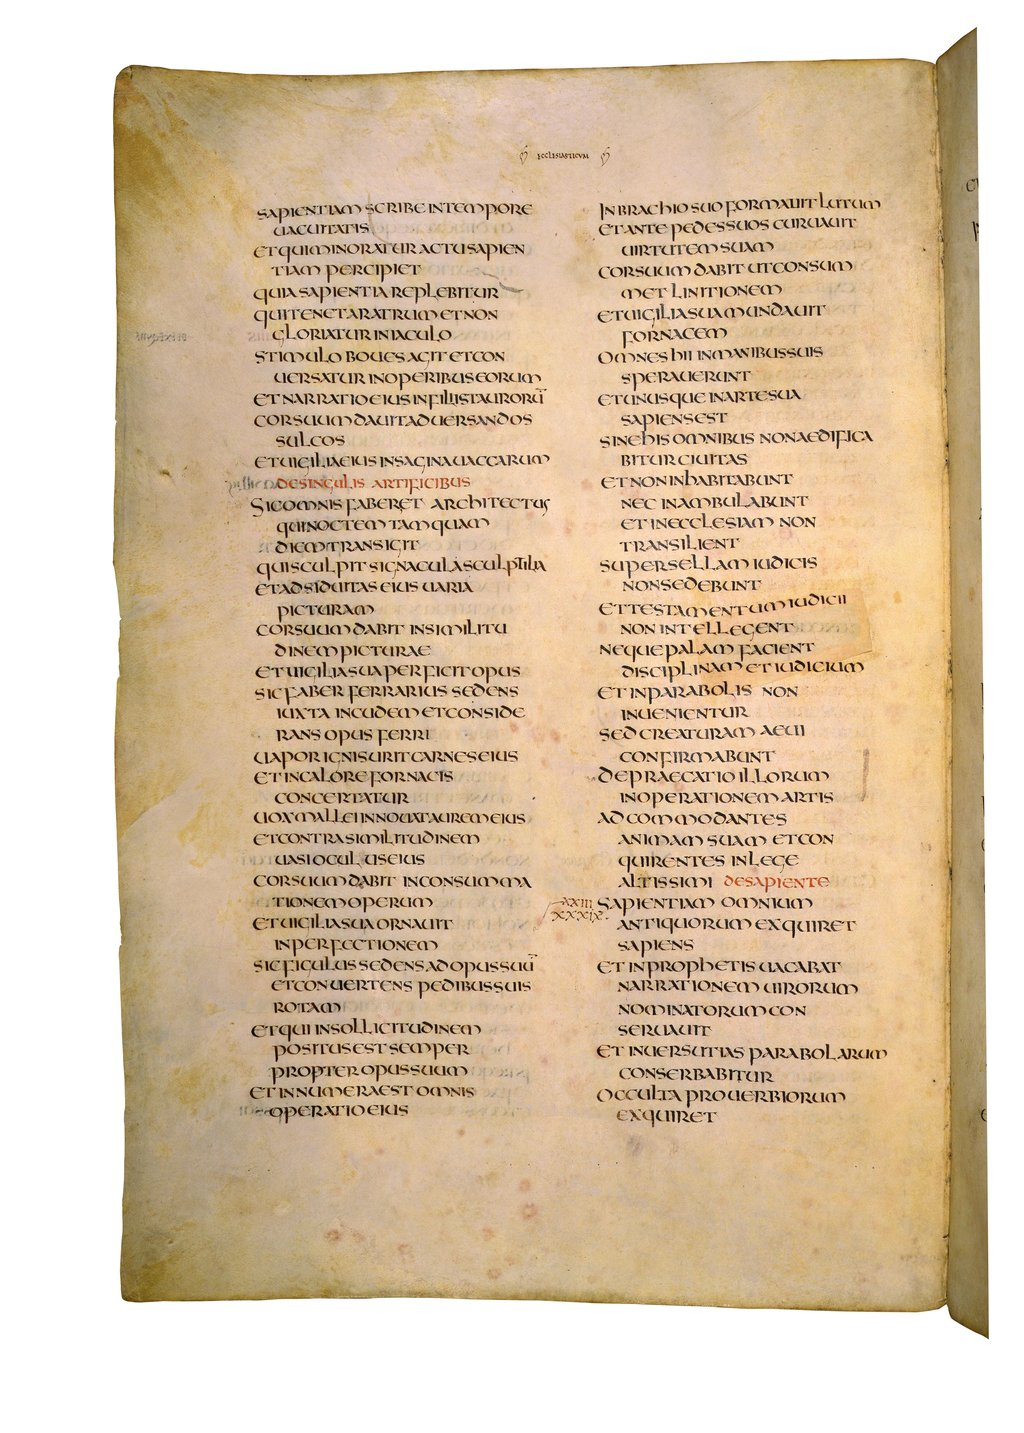 ECCLESIASTICUM
SAPIENTIAM SCRIBE IN TEMPORE
UACUITATIS
ET QUI MINORATUR ACTU SAPIEN
TIAM PERCIPIET
QUIA SAPIENTIA REPLEBITUR
QUI TENET ARATRUM ET NON
GLORIATUR IN IACULO
STIMULO BOUES AGIT ET CON
UERSATUR IN OPERIBUS EORUM
ET NARRATIO EIUS IN FILIIS TAURORŪ
COR SUUM DAUIT AD UERSANDOS
SULCOS
ET UIGILIA EIUS IN SAGINA UACCARUM
DE SINGULIS ARTIFICIBUS
SIC OMNIS FABER ET ARCHITECTUS
QUI NOCTEM TAMQUAM
DIEM TRANSIGIT
QUI SCULPIT SIGNACULA SCULPTILIA
ET ADSIDUITAS EIUS UARIA
PICTURAM
COR SUUM DABIT IN SIMILITU
DINEM PICTURAE
ET UIGILIA SUA PERFICIT OPUS
SIC FABER FERRARIUS SEDENS
IUXTA INCUDEM ET CONSIDE
RANS OPUS FERRI
UAPOR IGNIS URIT CARNES EIUS
ET IN CALORE FORNACIS
CONCERTATUR
UOX MALLEI INNOUAT AUREM EIUS
ET CONTRA SIMILITUDINEM
UASI OCULUS EIUS
COR SUUM DABIT IN CONSUMMA
TIONEM OPERUM
ET UIGILIA SUA ORNAUIT
IN PERFECTIONEM
SIC FIGULUS SEDENS AD OPUS SUŪ
ET CONUERTENS PEDIBUS SUIS
ROTAM
ET QUI IN SOLLICITUDINEM
POSITUS EST SEMPER
PROPTER OPUS SUUM
ET IN NUMERA EST OMNIS
OPERATIO EIUS
IN BRACHIO SUO FORMAUIT LUTUM
ET ANTE PEDES SUOS CURUAUIT
UIRTUTEM SUAM
COR SUUM DABIT UT CONSUM
MET LINITIONEM
ET UIGILIA SUA MUNDAUIT
FORNACEM
OMNES HII IN MANIBUS SUIS
SPERAUERUNT
ET UNUSQUE IN ARTE SUA
SAPIENS EST
SINE HIS OMNIBUS NON AEDIFICA
BITUR CIUITAS
ET NON INHABITABUNT
NEC INAMBULABUNT
ET IN ECCLESIAM NON
TRANSILIENT
SUPER SELLAM IUDICIS
NON SEDEBUNT
ET TESTAMENTUM IUDICII
NON INTELLEGENT
NEQUE PALAM FACIENT
DISCIPLINAM ET IUDICIUM
ET IN PARABOLIS NON
INUENIENTUR
SED CREATURAM AEUI
CONFIRMABUNT
DEPRAECATIO ILLORUM
IN OPERATIONEM ARTIS
ADCOMMODANTES
ANIMAM SUAM ET CON
QUIRENTES IN LEGE
ALTISSIMI DE SAPIENTE
XXIII SAPIENTIAM OMNIUM
XXXIX. ANTIQUORUM EXQUIRET
SAPIENS
ET IN PROPHETIS UACABAT
NARRATIONEM UIRORUM
NOMINATORUM CON
SERUAUIT
ET IN UERSUTIAS PARABOLARUM
CONSERBABITUR
OCCULTA PROUERBIORUM
EXQUIRET